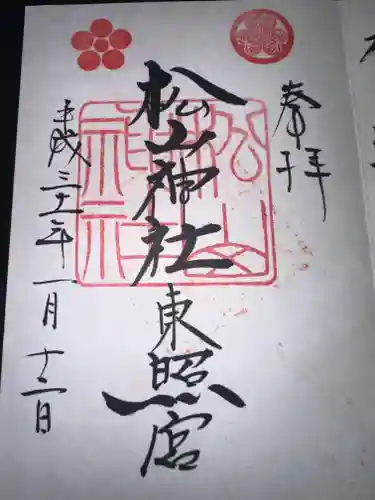 奉拝
松山神社東照宮
平成三十一年一月十二日
松山神社